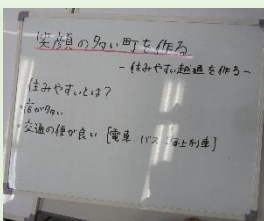 笑顔の多い町を作る
－住みやすい越道を作る－
住みやすいとは?
・店が多い
・交通の便が良い [電車 バス 列車]